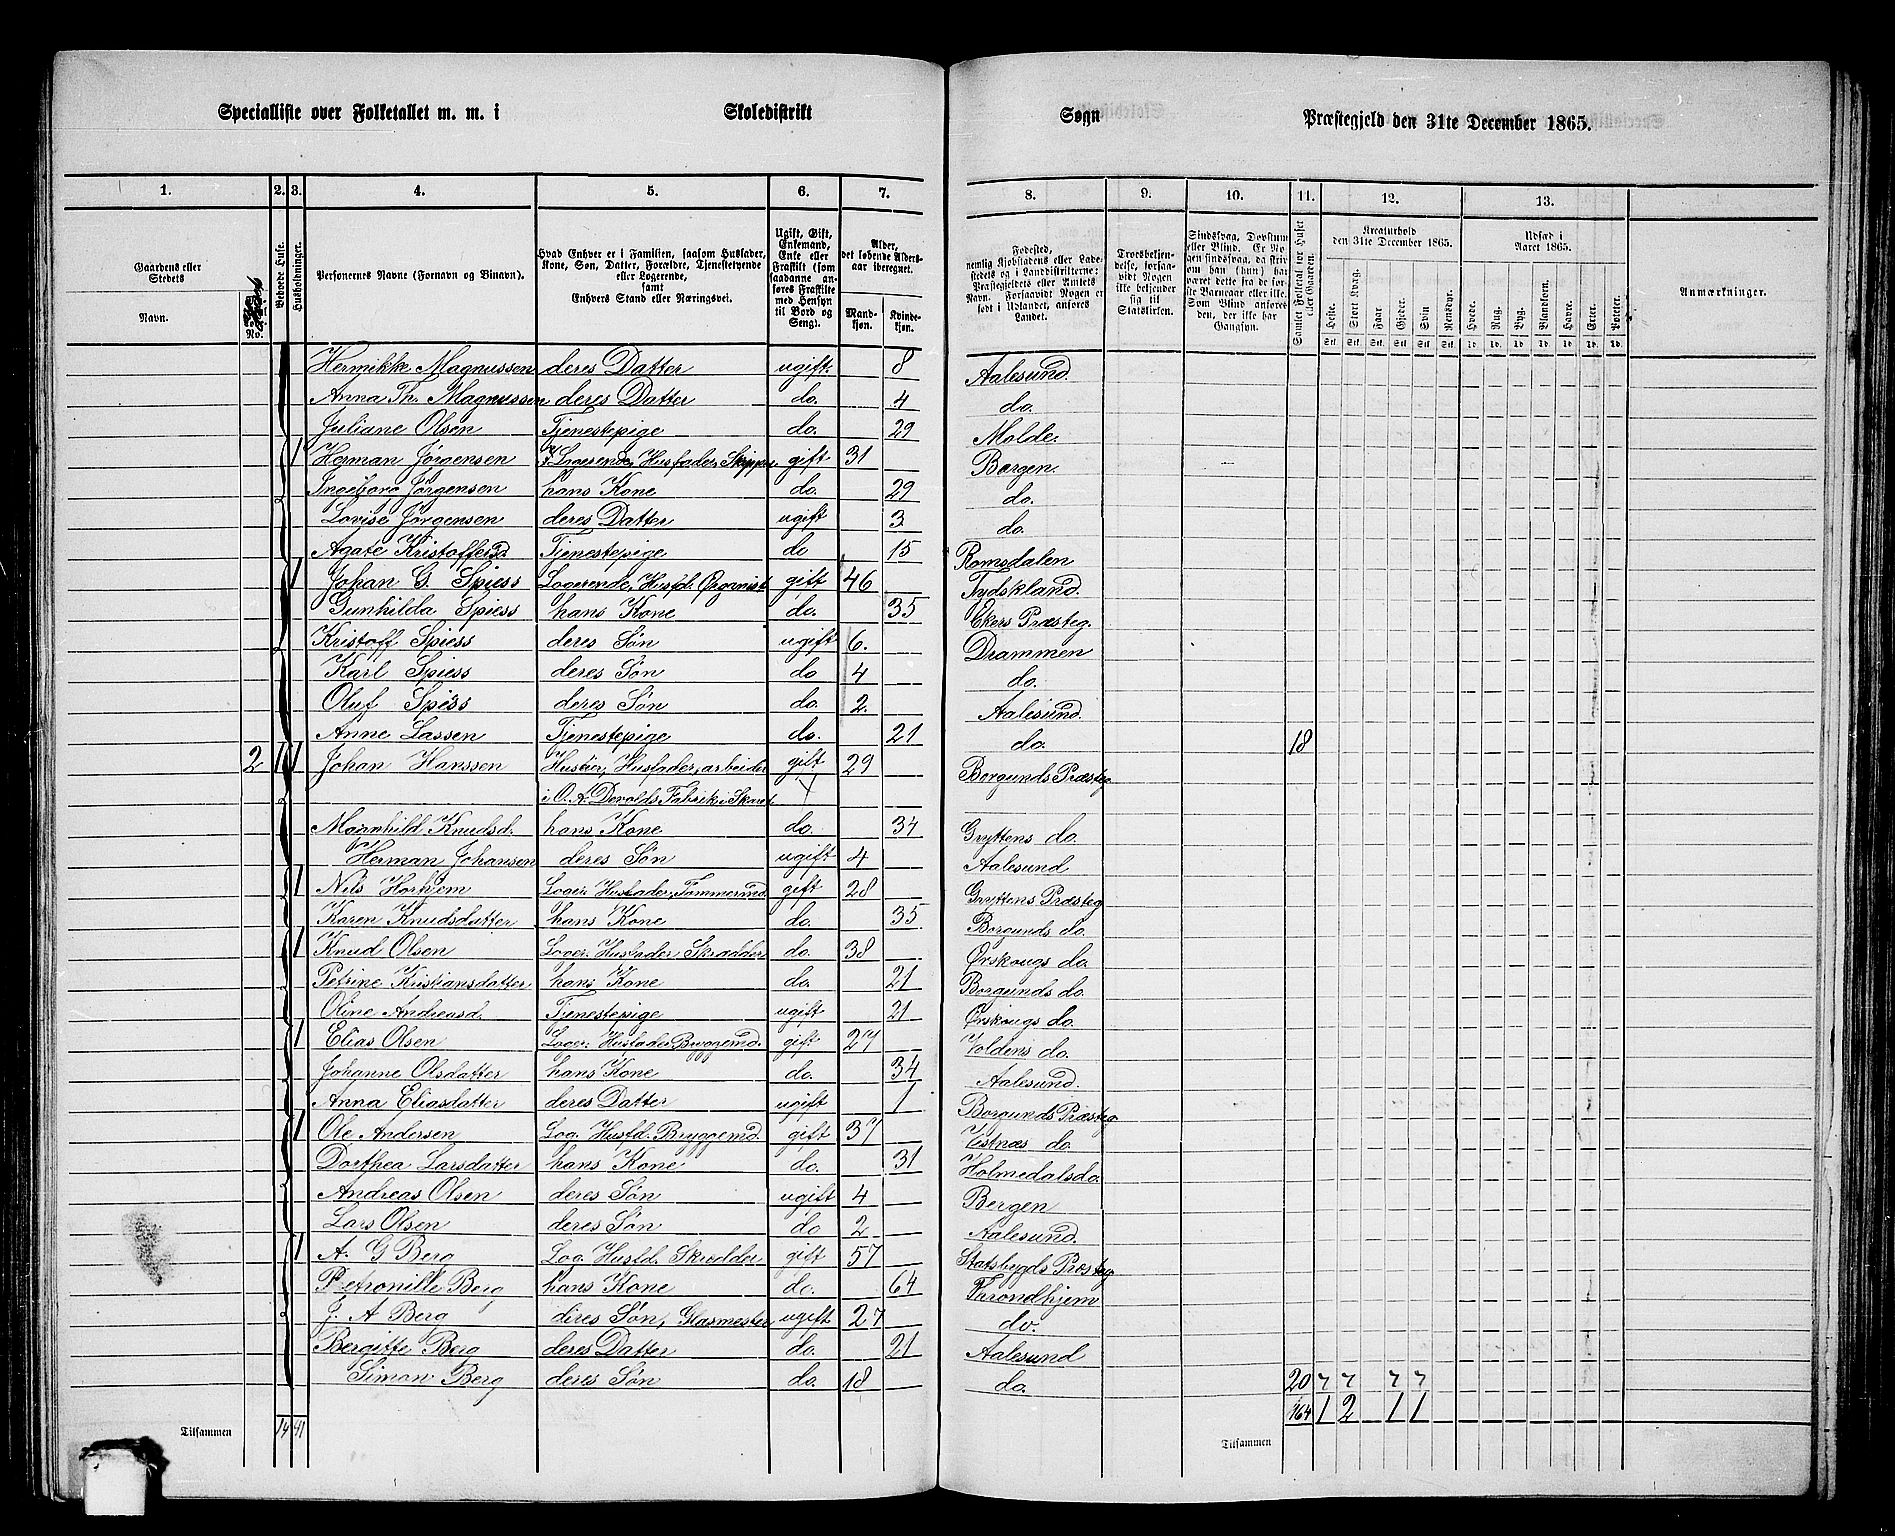 Specialliste over Folketallet m. m. i Skoledistrikt Sogn Præstegjeld den 31te December 1865.
1. 2. 3. 4. 5. 6. 7. 8. 9. 10. 11. 12. 13.
Gaardens eller Stedets Navn. No.
Beboede Huse.
Husholdninger.
Personernes Navne (Fornavn og Binavn).
Hvad Enhver er i Familien, saasom Husfader, Kone, Søn, Datter, Forældre, Tjenestetyende eller Logerende, samt Enhvers Stand eller Næringsvei.
Ugift, Gift, Enkemand, Enke eller Fraskilt (som saadanne anføres Fraskilte med Hensyn til Bord og Seng).
Alder, det løbende Aldersaar iberegnet.
Mandkjøn. Kvindekjøn.
Fødested, nemlig Kjøbstadens eller Ladestedets og i Landdistrikterne: Præstegjeldets eller Amtets Navn. Forsaavidt Nogen er født i Udlandet, anføres Landet.
Troesbekjendelse, forsaavidt Nogen ikke bekjender sig til Statskirken.
Sindssvag, Døvstum eller Blind. Er Nogen sindssvag, da skriv om han (hun) har været det fra de første Barneaar eller ikke. Som Blind anføres den, der ikke har Gangsyn.
Samlet Folketal for Huset eller Gaarden.
Kreaturhold den 31te December 1865.
Heste. Stort Kvæg. Faar. Gjeder. Svin. Rensdyr.
Udsæd i Aaret 1865.
Hvede. Rug. Byg. Blandkorn. Havre. Erter. Poteter.
Anmærkninger.
Hermikke Magnussen deres Datter ugift. 8 Aalesund.
Anna Th. Magnussen deres Datter do. 4 do.
Juliane Olsen Tjenestepige do. 29 Molde.
1 Herman Jørgensen Logerende, Husfader, Skipper gift 31 Bergen.
Ingeborg Jørgensen hans Kone do. 29 do.
Lovise Jørgensen deres Datter ugift 3 do.
Agate Kristoffersd. Tjenestepige do 15 Romsdalen
1 Johan G. Spiess Logerende, Husfd. Organist gift 46 Tydskland.
Gunhilda Spiess hans Kone do. 35 Ekers Præsteg.
Kristoff Spiess deres Søn ugift 6. Drammen
Karl Spiess deres Søn do 4 do.
Oluf Spiess deres Søn do. 2. Aalesund.
Anne Lassen Tjenestepige do. 21 do. 18
2 1 1 Johan Hanssen Huseier, Husfader, arbeider gift 29 Borgunds Præsteg
i O. A. Devolds Fabrik i Skaret
Magnhild Knudsd. hans Kone do. 34 Gryttens do.
Herman Johansen deres Søn ugift 4 Aalesund
1 Nils Horhjem Loger. Husfader, Tømmermd. gift 28 Gryttens Præsteg
Karen Knudsdatter hans Kone do. 35 Borgunds do.
1 Knud Olsen Loger. Husfader Skrædder do. 38 Ørskougs do.
Petrine Kristiansdatter hans Kone do. 21 Borgunds do.
Oline Andreasd. Tjenestepige ugift 21 Ørskougs do.
1 Elias Olsen Loger. Husfader Bryggemd. gift 27 Voldens do.
Johanne Olsdatter hans Kone do. 34 Aalesund.
Anna Eliasdatter deres Datter ugift 1 Borgunds Præsteg
1 Ole Andersen Log. Husfd. Bryggemd. gift 37 Vestnæs do.
Dorthea Larsdatter hans Kone do. 31 Holmedals do.
Andreas Olsen deres Søn ugift 4 Bergen
Lars Olsen deres Søn do 2 Aalesund.
1 A. G Berg Log. Husfd. Skrædder gift 57 Statsbygds Præsteg
Petronille Berg hans Kone do. 64 Tarondhjem
J. A Berg deres Søn, Glasmester ugift 27 do.
Bergitte Berg deres Datter do. 21 Aalesund
Simon Berg deres Søn do. 18 do. 20
Tilsammen 14 41 Tilsammen 164 1 2 1 1